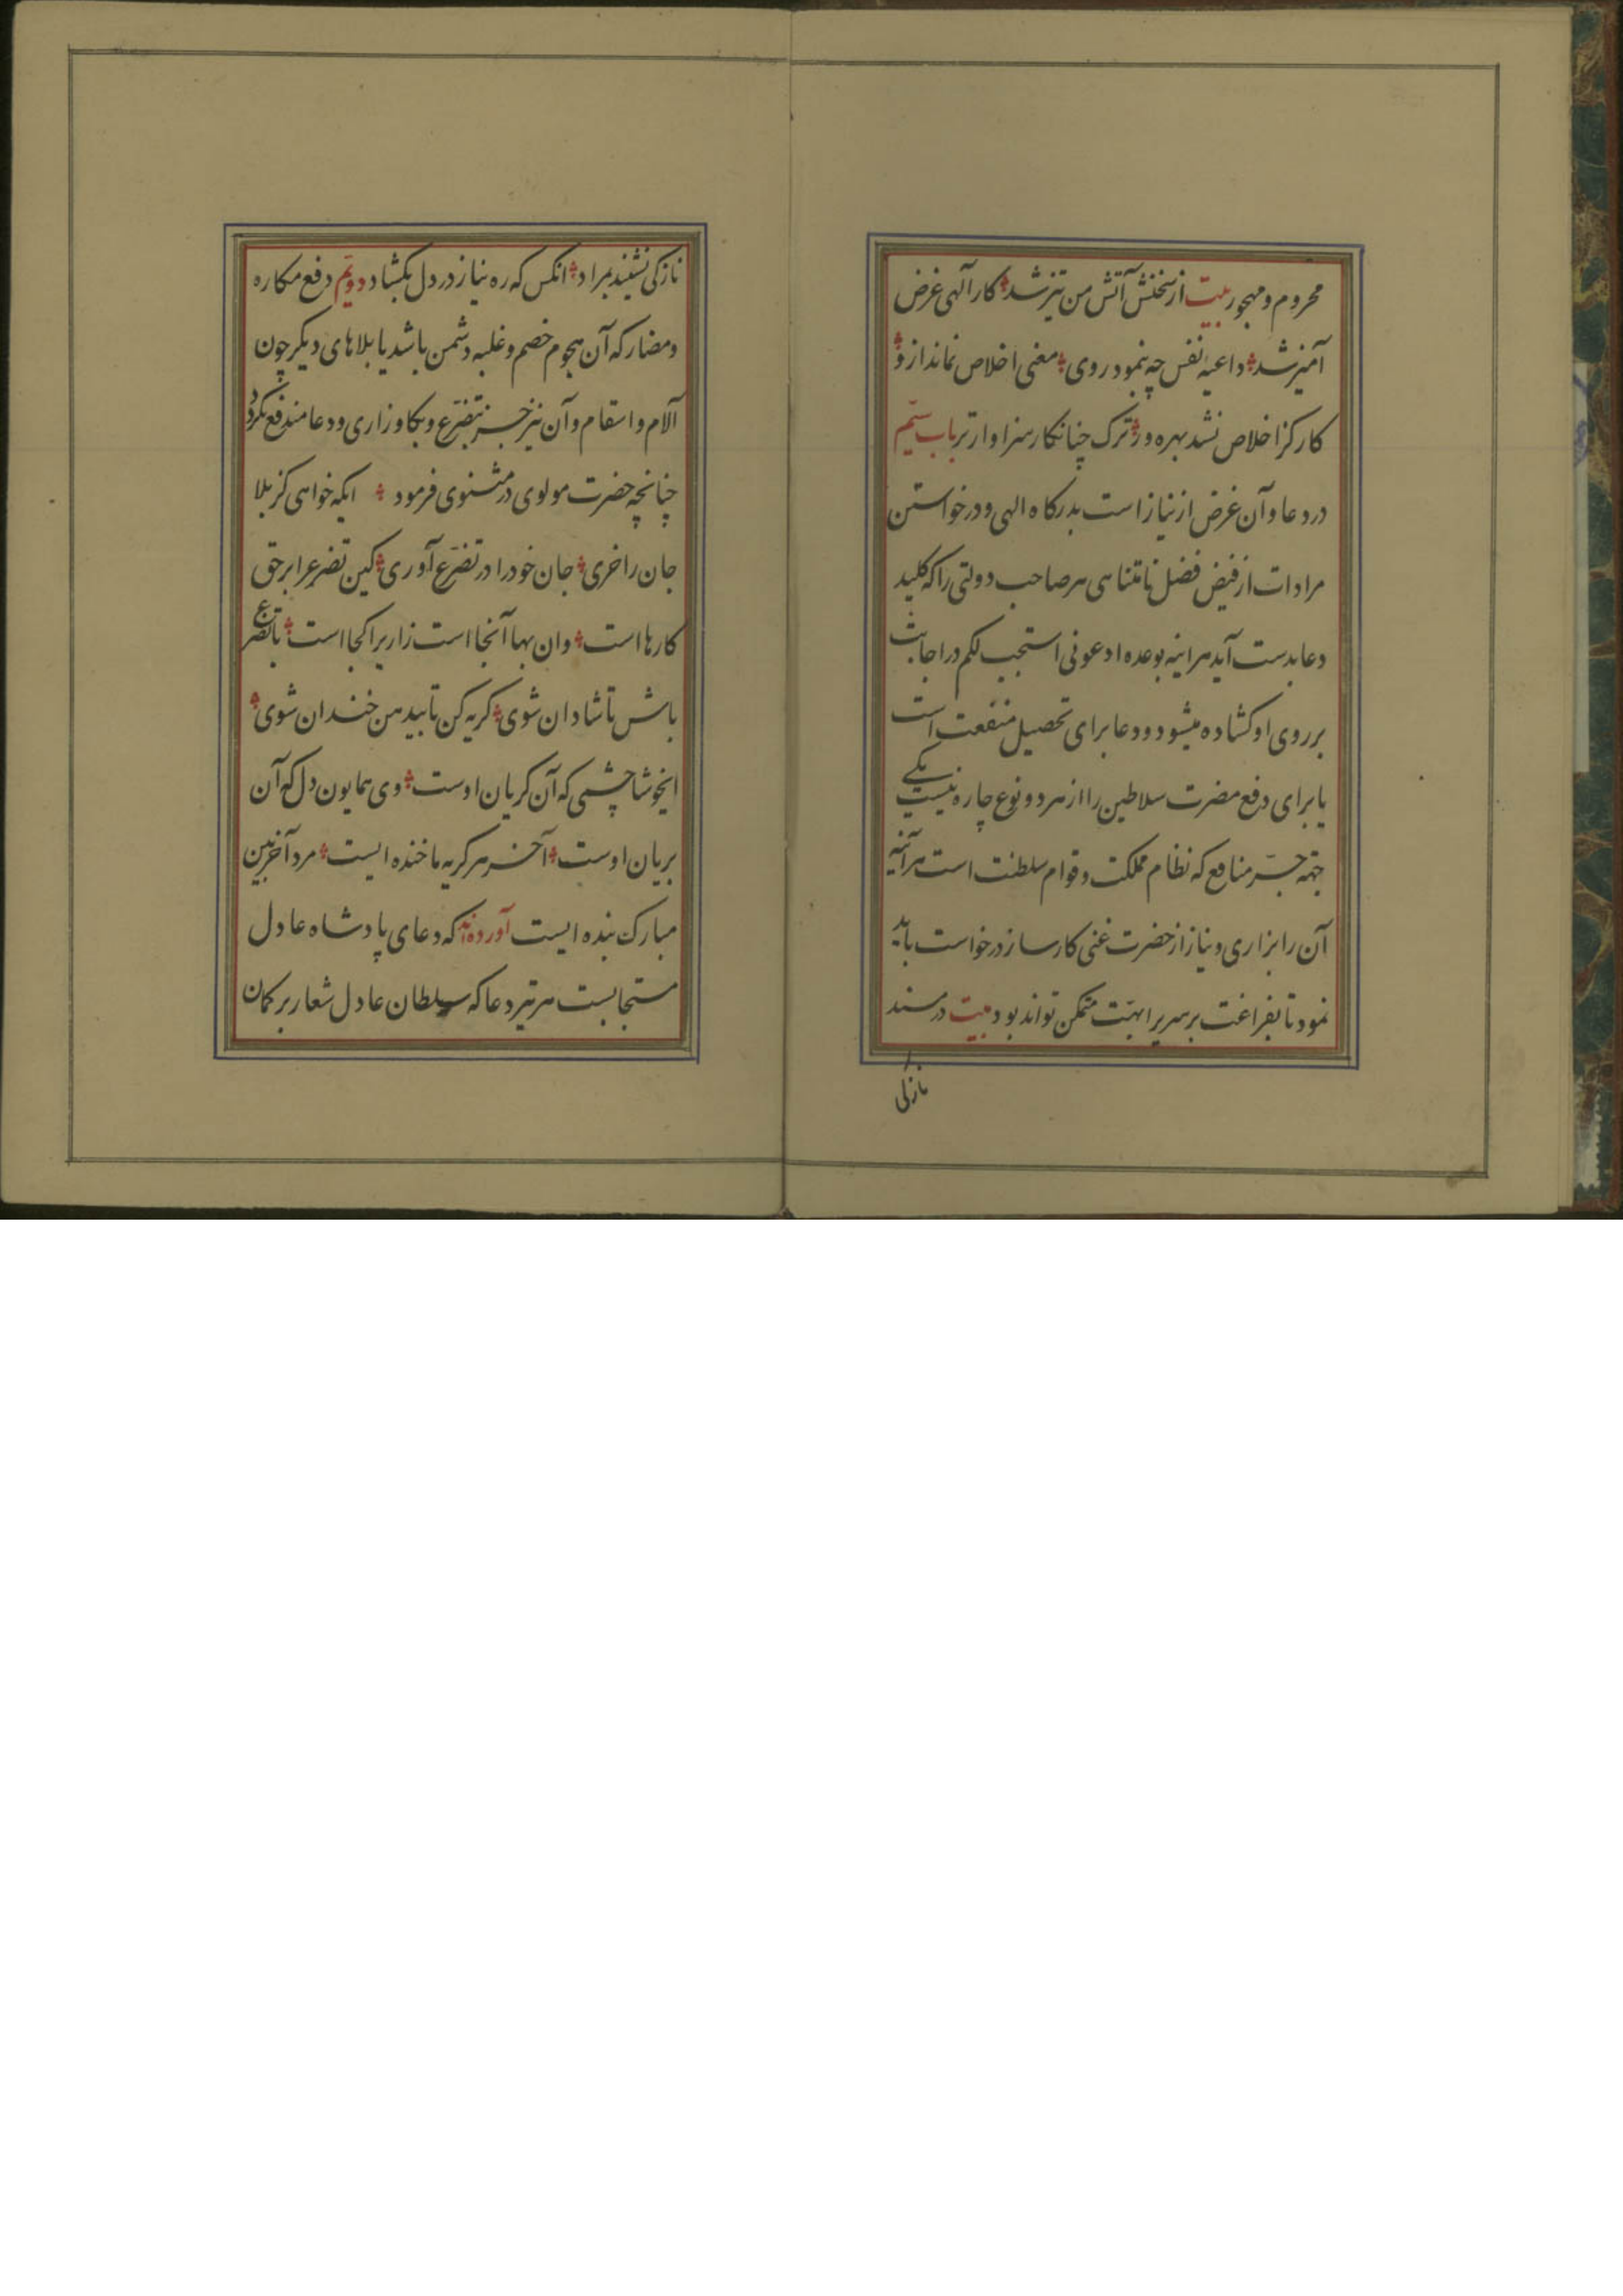 محروم و مهجور بیت از سخنش آتش من تیز شد کار آلهی غرض
آمیز شد داعیه نفس چه بنمود روی معنی اخلاص نماند از و
کار کز اخلاص نشد بهره ور ترک چنانکار سزاوارتر باب سیّم
در دعا و آن غرض از نیاز است بدرکاه الهی و درخواستن
مرادات از فیض فضل نامتناهی هر صاحب دولتی را که کلید
دعا بدست آید هراینه بوعده ادعونی استجب لکم در اجابت
بر روی او کشاده میشود و دعا برای تحصیل منفعت است
یا برای دفع مضرت سلاطین را از هر دو نوع چاره نیست یکے
جهة جرّ منافع که نظام مملکت و قوام سلطنت است هرآئینه
آن را بزاری و نیاز از حضرت غنی کارساز درخواست باید
نمود تا بفراغت بر سریر ابهّت متمکن تواند بود بیت در مسند
نازکی
نازکی نشیند بمراد انکس که ره نیاز در دل بکشاد دویّم دفع مکاره
و مضار که آن هجوم خصم و غلبه دشمن باشد یا بلاهای دیکر چون
آلام و اسقام و آن نیز جز بتضرّع و بکا و زاری و دعا مندفع نکردد
چنانچه حضرت مولوی در مثنوی فرمود ایکه خواهی کز بلا
جان را خری جان خود را در تضرّع آوری کین تضرع را بر حق
کارها است وان بها آنجا است زاریرا کجا است با تضرع
باش تا شادان شوی کریه کن تا بیدهن خندان شوی
ایخوشا چشمی که آن کریان اوست وی همایون دل که آن
بریان اوست آخر هر کریه ما خنده ایست مرد آخربین
مبارک بنده ایست آورده‌اند که دعای پادشاه عادل
مستجابست هر تیر دعا که سلطان عادل شعار بر کمان